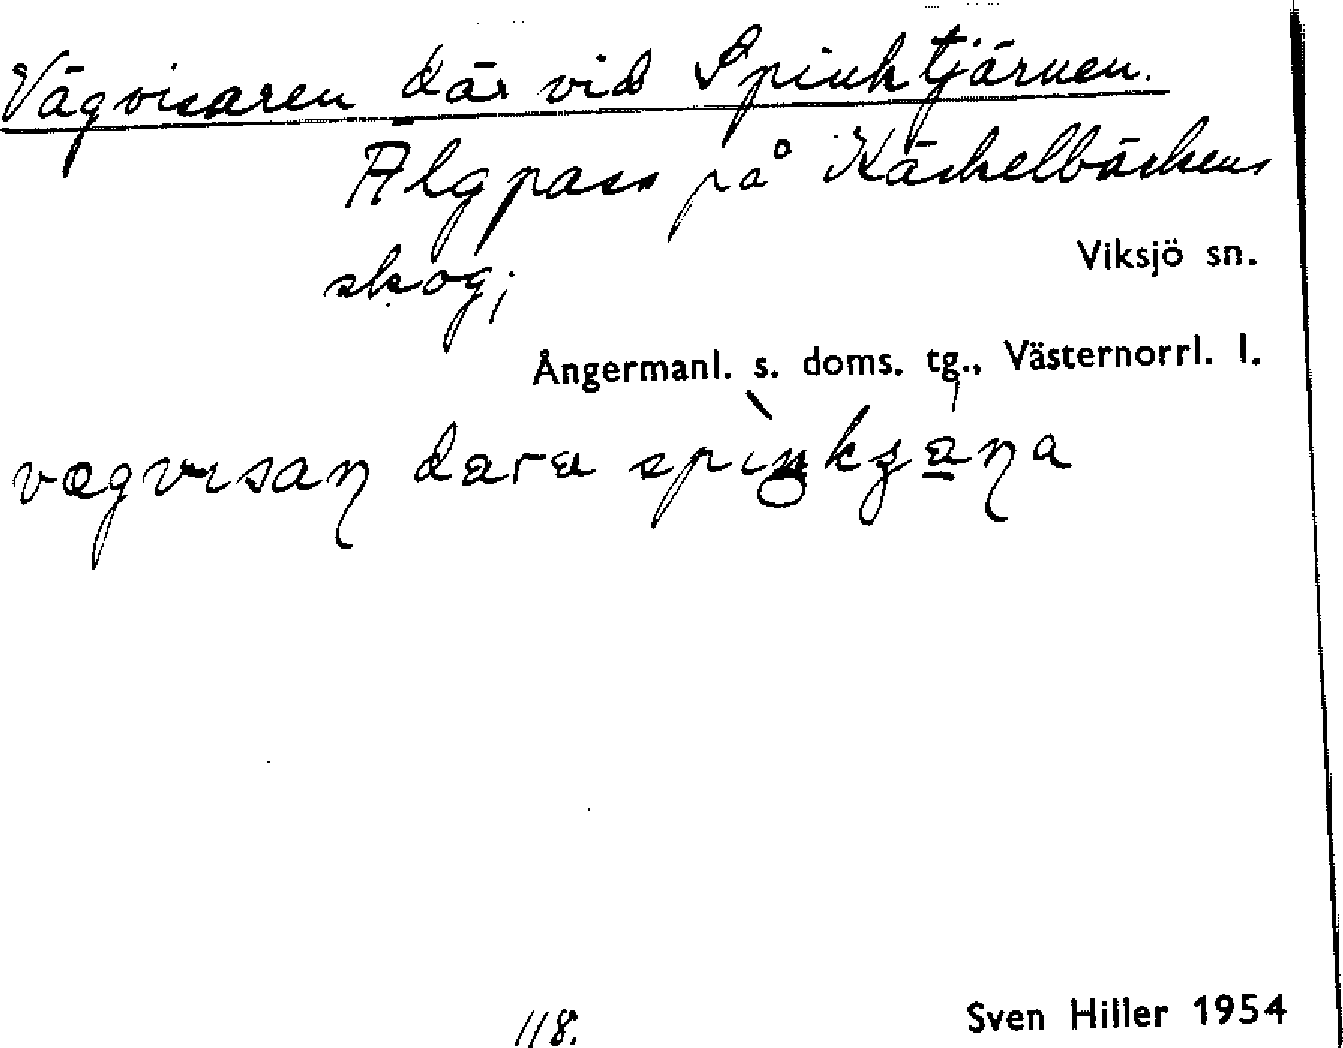 Vägvisaren där vid Spinktjärnen.
Älgpass på Käckelbäckens
skog;
Viksjö sn.
Ångermanl. s. doms. tg., Västernorrl. l.
Sven Hiller 1954
118.